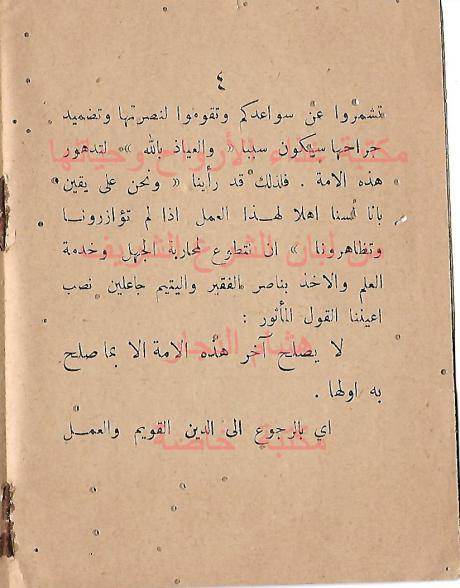 ٤
تشمروا عن سواعدكم وتقوموا لنصرتها وتضميد
جراحها سيكون سببا « والعياذ بالله » لتدهور
هذه الامة . فلذلك قد رأينا « ونحن على يقين
بانا لسنا اهلا لهذا العمل اذا لم تؤازرونا
وتظاهرونا » ان نتطوع لمحاربة الجهل وخدمة
العلم والاخذ بناصر الفقير واليتيم جاعلين نصب
اعيننا القول المأثور :
لا يصلح آخر هذه الامة الا بما صلح
به اولها .
اي بالرجوع الى الدين القويم والعمل
مكتبة عطاء الأرواح وحياتها
من لبان الشرع الشريف
هشام النجار
مكتبة خاصة